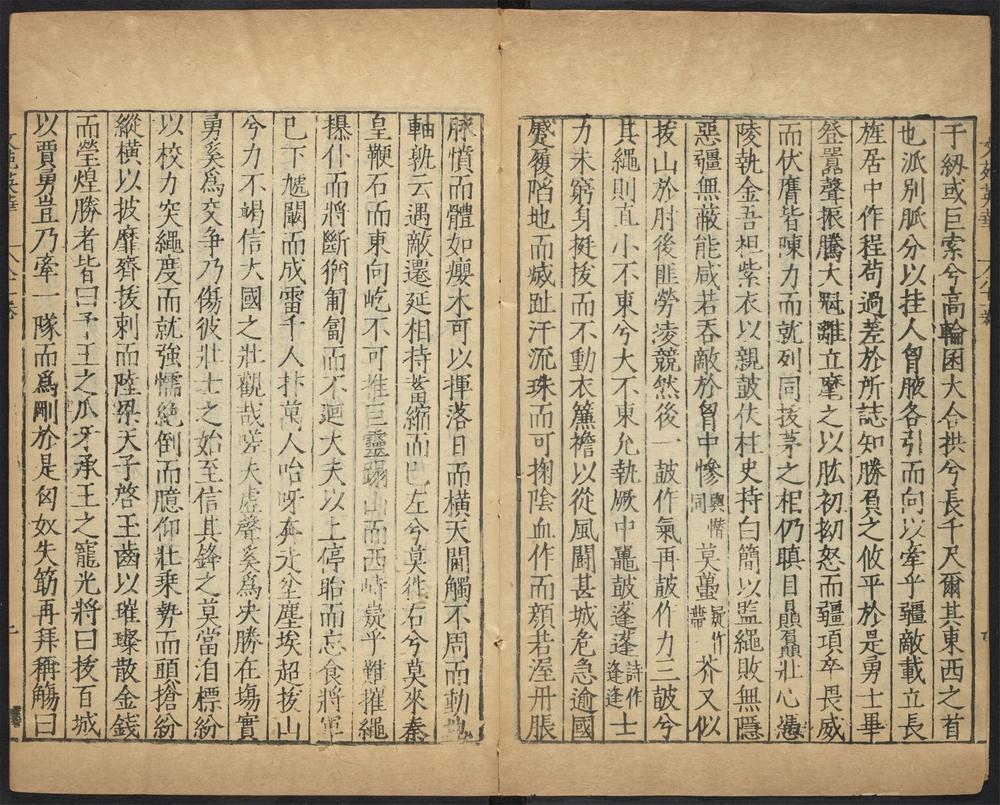 于紉或巨索兮高輪囷大合拱兮長千尺爾其東西之首
也派別脈分以挂人胷腋各引而向以牽乎疆敵載立長
旌居中作程苟過差於所誌知勝負之攸平於是勇士畢
登嚣聲振騰大魁離立麾之以肱初拗怒而疆項卒畏威
而伏膺皆陳力而就列同拔茅之相仍瞋目贔屭壯心憑
陵執金吾袒紫衣以親鼓仗柱史持白簡以監繩敗無隱
惡彊無蔽能咸若吞敵於胷中慘與憯同莫蠆疑作蔕芥又似
拔山於肘後匪勞凌競然後一皷作氣再皷作力三皷兮
其繩則直小不東兮大不東允執厥中鼉鼓逢逢詩作逢逢士
力未窮身挺拔而不動衣簾襜以從風鬭甚城危急逾國
蹙履陷地而滅趾汗流珠而可掬陰血作而顔若渥丹脹
脉憤而體如癭木可以揮落日而橫天闗觸不周而動地
軸孰云遇敵遷延相持蓄縮而巳左兮莫往右兮莫來秦
皇鞭石而東向屹不可推巨靈蹋山而西峙嶷乎難摧繩
㩧仆而將斷猶匍匐而不迴大夫以上停眙而忘食將軍
巳下虓闞而成雷千人抃萬人咍呀奔走坌塵埃超拔山
兮力不竭信大國之壯觀哉嗟夫虛聲奚爲决勝在塲實
勇奚爲交争乃傷彼壯士之始至信其鋒之莫當洎標紛
以校力突繩度而就強懦絶倒而臆仰壯乘勢而頭搶紛
縱橫以披靡齊拔刺而陸梁天子啓玉齒以璀璨散金錢
而瑩煌勝者皆曰予王之爪牙承王之寵光將曰拔百城
以賈勇豈乃牽一隊而爲剛於是匈奴失筯再拜稱觴曰